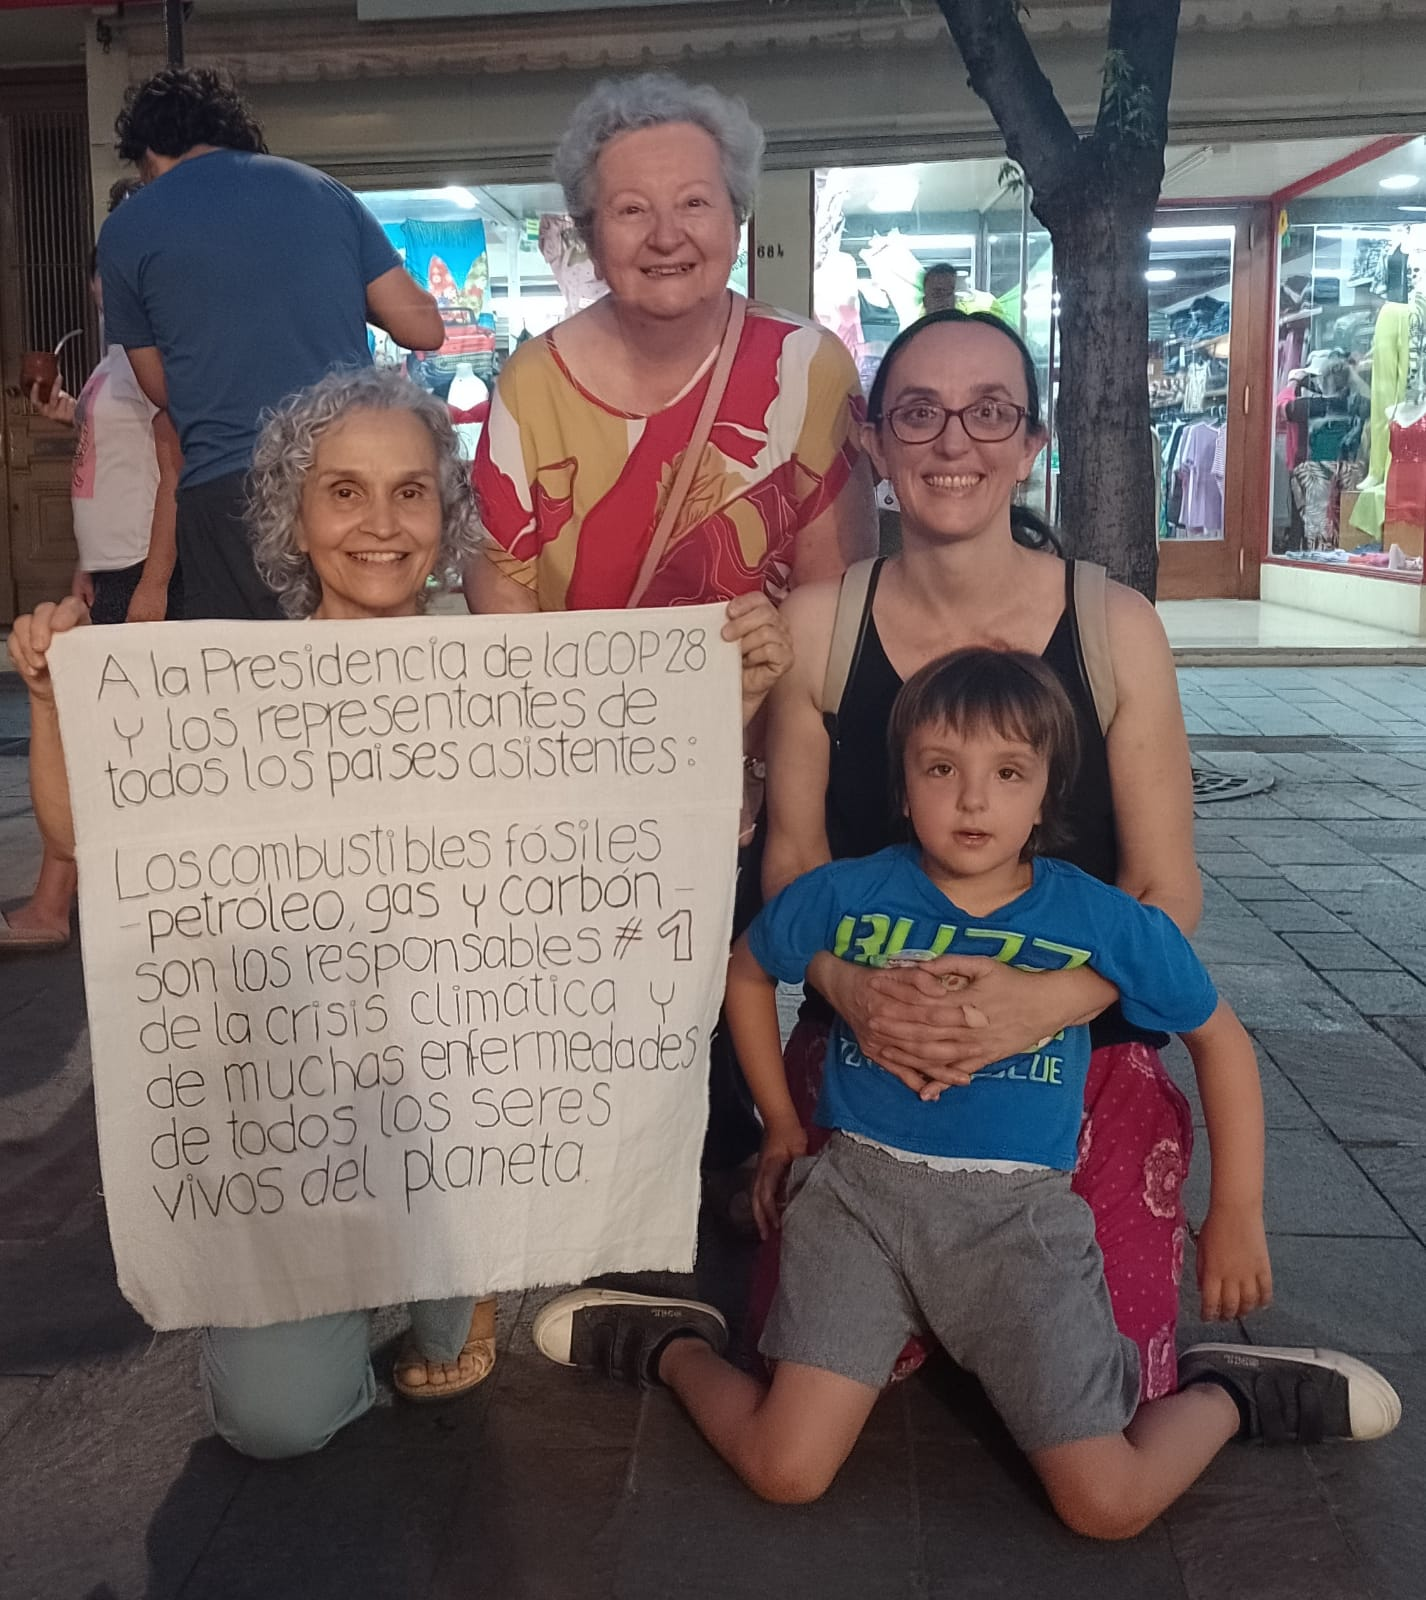 684
A la Presidencia de la COP28
y los representantes de
todos los paises asistentes:
Los combustibles fósiles
-petróleo, gas y carbón-
son los responsables #1
de la crisis climática y
de muchas enfermedades
de todos los seres
vivos del planeta.
BUZZ